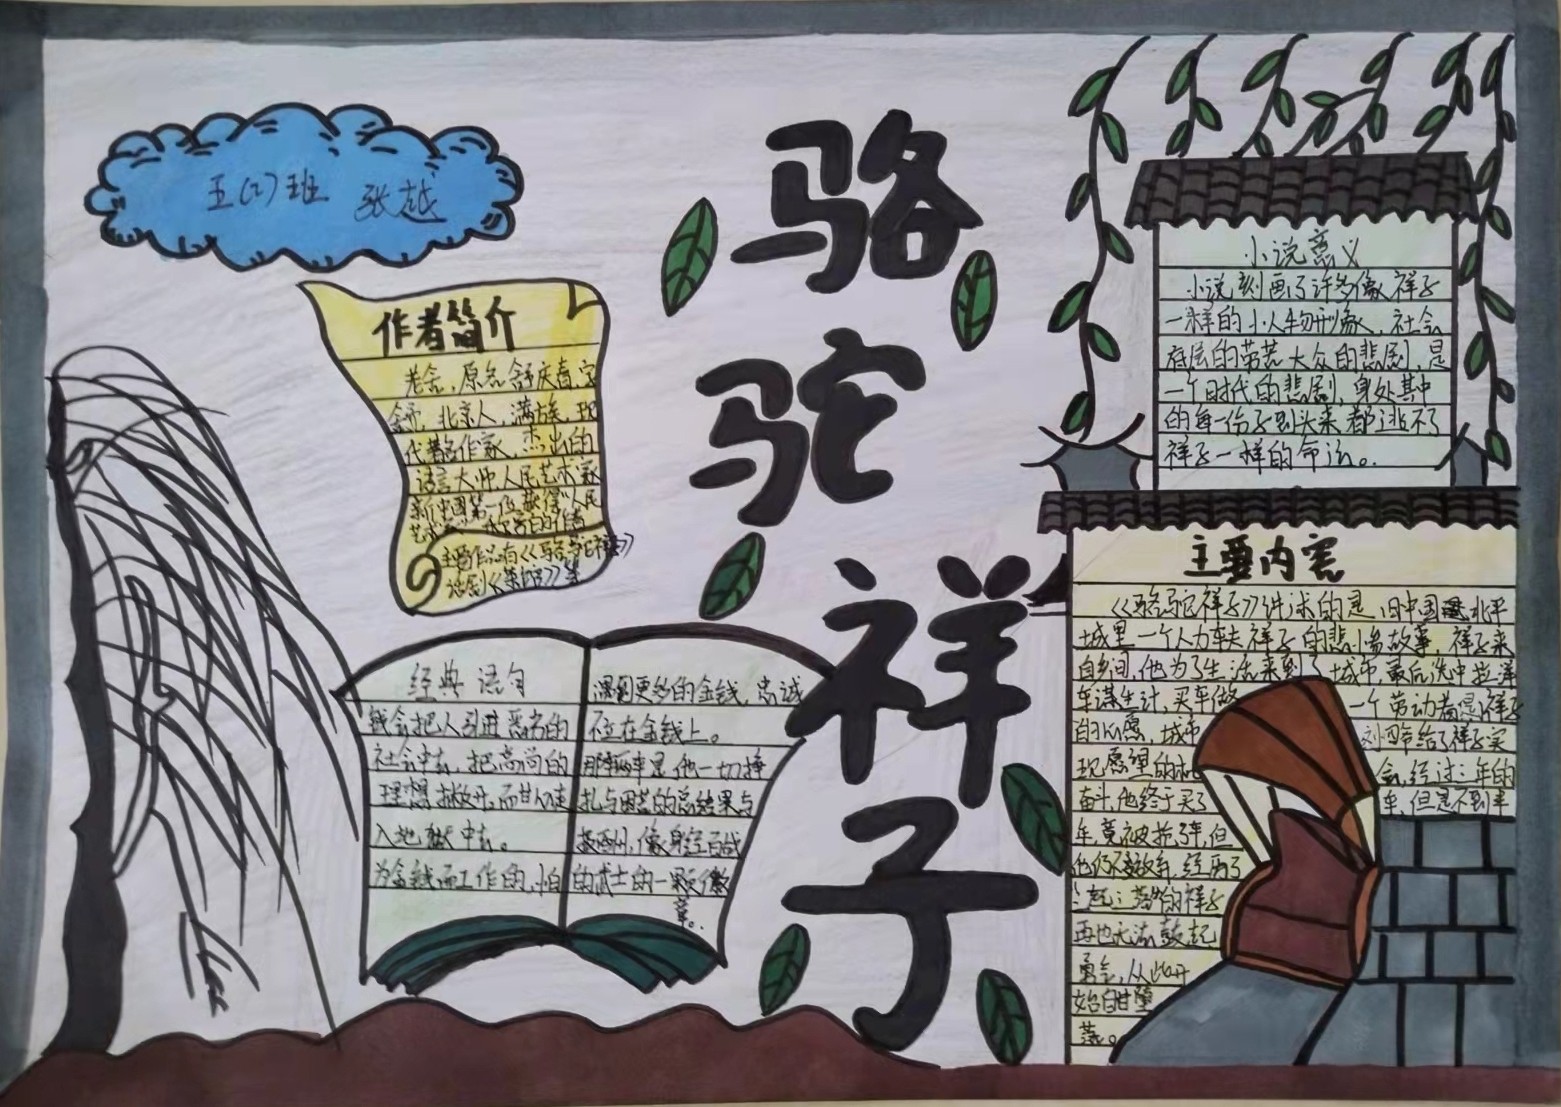 骆驼祥子
五(1)班 张越
作者简介
老舍,原名舒庆春,字
舍予,北京人,满族,现
代著名作家、杰出的
语言大师,人民艺术家
新中国第一位获得“人民
艺术家”称号的作家
主要作品有《骆驼祥子》
话剧《茶馆》等
经典语句
钱会把人引进恶劣的
社会中去,把高尚的
理想撇开,而甘心走
入地狱中去。
为金钱而工作的,怕
遇到更多的金钱,忠诚
不立在金钱上。
那辆车是他一切挣
扎与困苦的总结果与
报酬,像身经百战
的武士的一颗徽
章。
小说意义
小说刻画了许多像祥子
一样的小人物形象,社会
底层的劳苦大众的悲剧,是
一个时代的悲剧,身处其中
的每一份子到头来都逃不了
祥子一样的命运。
主要内容
《骆驼祥子》讲述的是旧中国北平
城里一个人力车夫祥子的悲惨故事 祥子来
自乡间,他为了生活来到了城市,最后选中拉洋
车谋生计,买车做 一个劳动者是祥子
的心愿 城市 刘四爷给了祥子实
现愿望的机会,经过三年的
奋斗,他终于买了车,但是不到半
年竟被抢了车,但
他仍不敢放弃,经历了
三起三落的祥子
再也无法鼓起
勇气,从此开
始自甘堕
落。